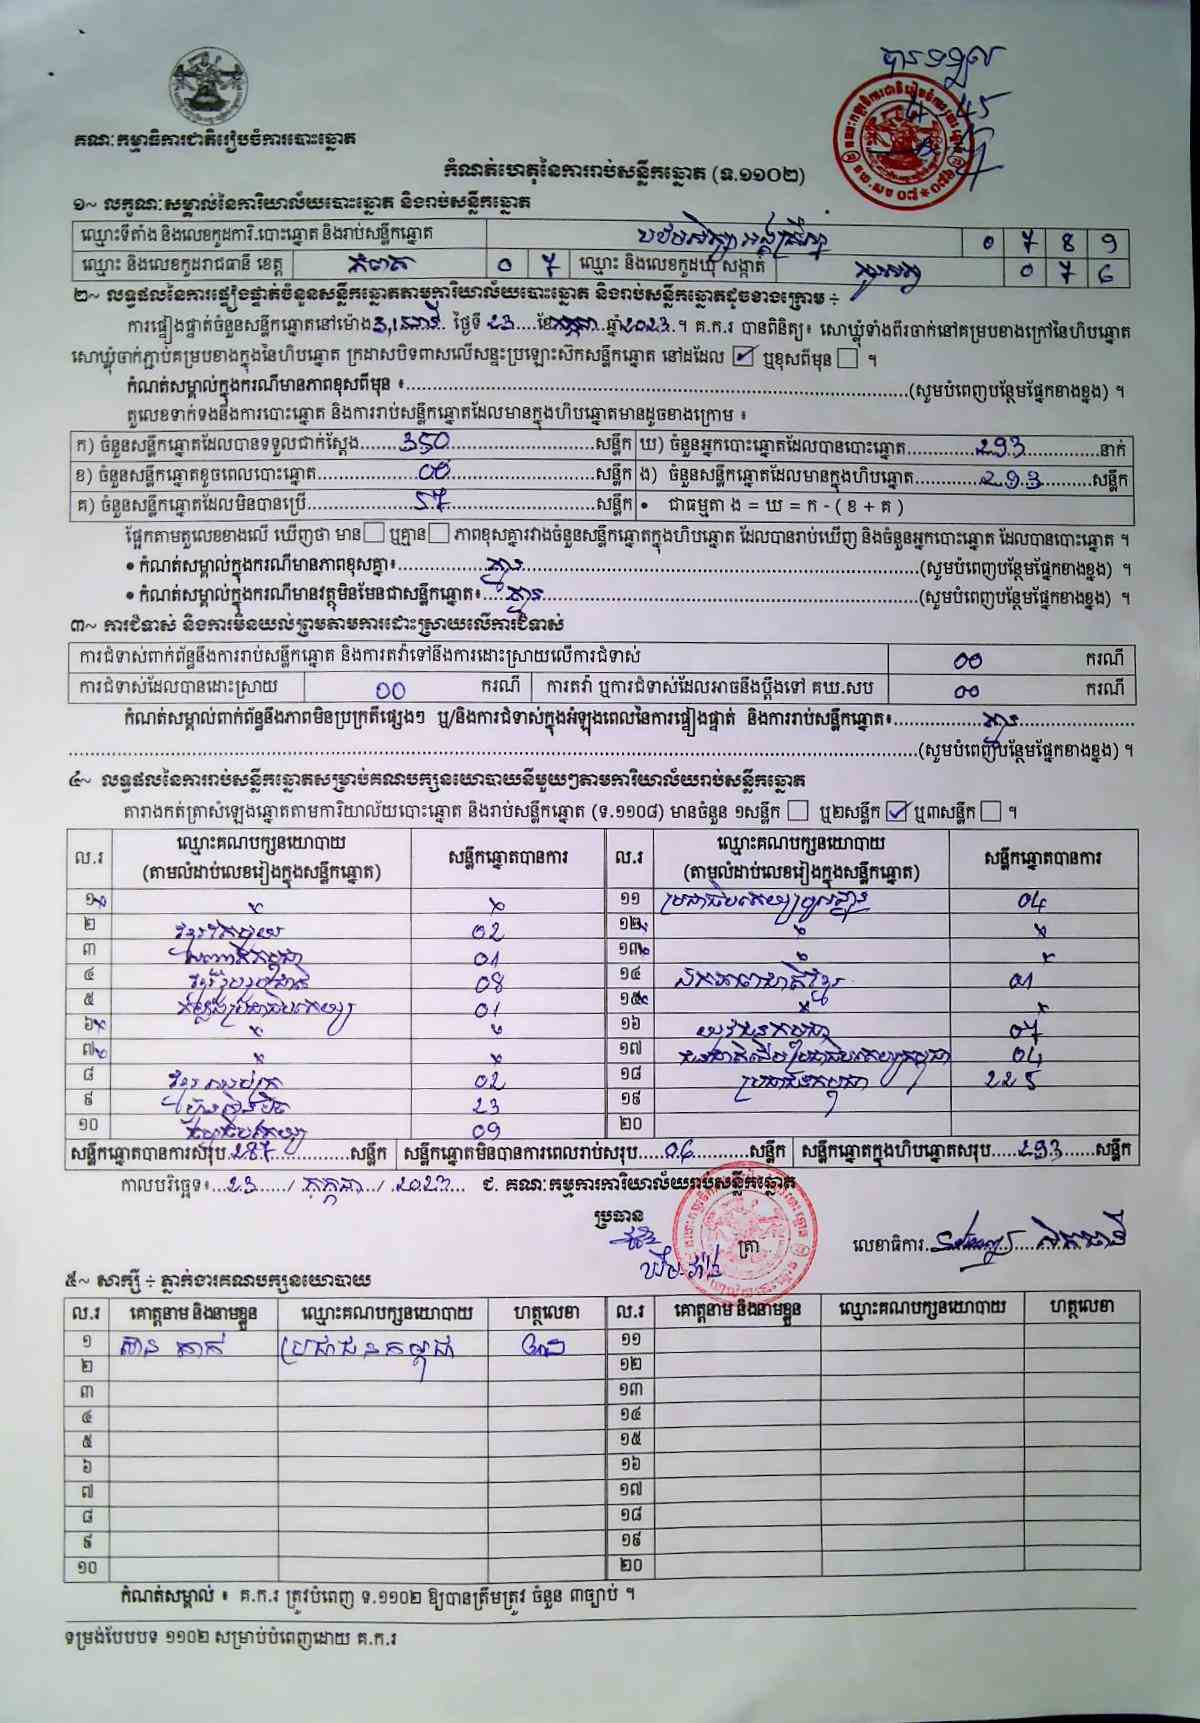 បានទទួល
គណៈកម្មាធិការជាតិរៀបចំការបោះឆ្នោត
កំណត់ហេតុនៃការរាប់សន្លឹកឆ្នោត (ទ.១១០២)
១~ លក្ខណៈសម្គាល់នៃការិយាល័យបោះឆ្នោត និងរាប់សន្លឹកឆ្នោត
ឈ្មោះទីតាំង និងលេខកូដការិ.បោះឆ្នោត និងរាប់សន្លឹកឆ្នោត 0 7 8 9
ឈ្មោះ និងលេខកូដរាជធានី ខេត្ត កំពត 0 7 ឈ្មោះ និងលេខកូដឃុំ សង្កាត់ 0 7 6
២~ លទ្ធផលនៃការផ្ទៀងផ្ទាត់ចំនួនសន្លឹកឆ្នោតតាមការិយាល័យបោះឆ្នោត និងរាប់សន្លឹកឆ្នោតដូចខាងក្រោម ÷
ការផ្ទៀងផ្ទាត់ចំនួនសន្លឹកឆ្នោតនៅម៉ោង ថ្ងៃទី 23 ខែ កក្កដា ឆ្នាំ 2023 ។ គ.ក.រ បានពិនិត្យ៖ សោឃ្លុំទាំងពីរចាក់នៅគម្របខាងក្រៅនៃហិបឆ្នោត
សោឃ្លុំចាក់ភ្ជាប់គម្របខាងក្នុងនៃហិបឆ្នោត ក្រដាសបិទពាសលើសន្ទះប្រឡោះស៊កសន្លឹកឆ្នោត នៅដដែល ☑ ឬខុសពីមុន ☐ ។
កំណត់សម្គាល់ក្នុងករណីមានភាពខុសពីមុន ៖ (សូមបំពេញបន្ថែមផ្នែកខាងខ្នង) ។
តួលេខទាក់ទងនឹងការបោះឆ្នោត និងការរាប់សន្លឹកឆ្នោតដែលមានក្នុងហិបឆ្នោតមានដូចខាងក្រោម ៖
ក) ចំនួនសន្លឹកឆ្នោតដែលបានទទួលជាក់ស្តែង 350 សន្លឹក ឃ) ចំនួនអ្នកបោះឆ្នោតដែលបានបោះឆ្នោត 293 នាក់
ខ) ចំនួនសន្លឹកឆ្នោតខូចពេលបោះឆ្នោត 00 សន្លឹក ង) ចំនួនសន្លឹកឆ្នោតដែលមានក្នុងហិបឆ្នោត 293 សន្លឹក
គ) ចំនួនសន្លឹកឆ្នោតដែលមិនបានប្រើ 57 សន្លឹក • ជាធម្មតា ង = ឃ = ក - ( ខ + គ )
ផ្អែកតាមតួលេខខាងលើ ឃើញថា មាន ☐ ឬគ្មាន ☐ ភាពខុសគ្នារវាងចំនួនសន្លឹកឆ្នោតក្នុងហិបឆ្នោត ដែលបានរាប់ឃើញ និងចំនួនអ្នកបោះឆ្នោត ដែលបានបោះឆ្នោត ។
• កំណត់សម្គាល់ក្នុងករណីមានភាពខុសគ្នា៖ គ្មាន (សូមបំពេញបន្ថែមផ្នែកខាងខ្នង) ។
• កំណត់សម្គាល់ក្នុងករណីមានវត្ថុមិនមែនជាសន្លឹកឆ្នោត៖ គ្មាន (សូមបំពេញបន្ថែមផ្នែកខាងខ្នង) ។
៣~ ការជំទាស់ និងការមិនយល់ព្រមតាមការដោះស្រាយលើការជំទាស់
ការជំទាស់ពាក់ព័ន្ធនឹងការរាប់សន្លឹកឆ្នោត និងការតវ៉ាទៅនឹងការដោះស្រាយលើការជំទាស់ 00 ករណី
ការជំទាស់ដែលបានដោះស្រាយ 00 ករណី ការតវ៉ា ឬការជំទាស់ដែលអាចនឹងប្តឹងទៅ គឃ.សប 00 ករណី
កំណត់សម្គាល់ពាក់ព័ន្ធនឹងភាពមិនប្រក្រតីផ្សេងៗ ឬ/និងការជំទាស់ក្នុងអំឡុងពេលនៃការផ្ទៀងផ្ទាត់ និងការរាប់សន្លឹកឆ្នោត៖ គ្មាន
(សូមបំពេញបន្ថែមផ្នែកខាងខ្នង) ។
៤~ លទ្ធផលនៃការរាប់សន្លឹកឆ្នោតសម្រាប់គណបក្សនយោបាយនីមួយៗតាមការិយាល័យរាប់សន្លឹកឆ្នោត
តារាងកត់ត្រាសំឡេងឆ្នោតតាមការិយាល័យបោះឆ្នោត និងរាប់សន្លឹកឆ្នោត (ទ.១១០៨) មានចំនួន ១សន្លឹក ☐ ឬ២សន្លឹក ☑ ឬ៣សន្លឹក ☐ ។
ល.រ ឈ្មោះគណបក្សនយោបាយ (តាមលំដាប់លេខរៀងក្នុងសន្លឹកឆ្នោត) សន្លឹកឆ្នោតបានការ ល.រ ឈ្មោះគណបក្សនយោបាយ (តាមលំដាប់លេខរៀងក្នុងសន្លឹកឆ្នោត) សន្លឹកឆ្នោតបានការ
១ × × ១១ 04
២ ខ្មែរតែមួយ 02 ១២ × ×
៣ 01 ១៣ × ×
៤ ខ្មែររួបរួមជាតិ 08 ១៤ ឯកភាពជាតិខ្មែរ 01
៥ 01 ១៥ × ×
៦ × × ១៦ យុវជនកម្ពុជា 07
៧ × × ១៧ 04
៨ 02 ១៨ ប្រជាជនកម្ពុជា 225
៩ ហ៊្វុនស៊ិនប៉ិច 23 ១៩
១០ 09 ២០
សន្លឹកឆ្នោតបានការសរុប 287 សន្លឹក សន្លឹកឆ្នោតមិនបានការពេលរាប់សរុប 06 សន្លឹក សន្លឹកឆ្នោតក្នុងហិបឆ្នោតសរុប 293 សន្លឹក
កាលបរិច្ឆេទ៖ 23 / កក្កដា / 2023 ជ. គណៈកម្មការការិយាល័យរាប់សន្លឹកឆ្នោត
ប្រធាន
ត្រា លេខាធិការ
៥~ សាក្សី ÷ ភ្នាក់ងារគណបក្សនយោបាយ
ល.រ គោត្តនាម និងនាមខ្លួន ឈ្មោះគណបក្សនយោបាយ ហត្ថលេខា ល.រ គោត្តនាម និងនាមខ្លួន ឈ្មោះគណបក្សនយោបាយ ហត្ថលេខា
១ ប្រជាជនកម្ពុជា ១១
២ ១២
៣ ១៣
៤ ១៤
៥ ១៥
៦ ១៦
៧ ១៧
៨ ១៨
៩ ១៩
១០ ២០
កំណត់សម្គាល់ ៖ គ.ក.រ ត្រូវបំពេញ ទ.១១០២ ឱ្យបានត្រឹមត្រូវ ចំនួន ៣ច្បាប់ ។
ទម្រង់បែបបទ ១១០២ សម្រាប់បំពេញដោយ គ.ក.រ